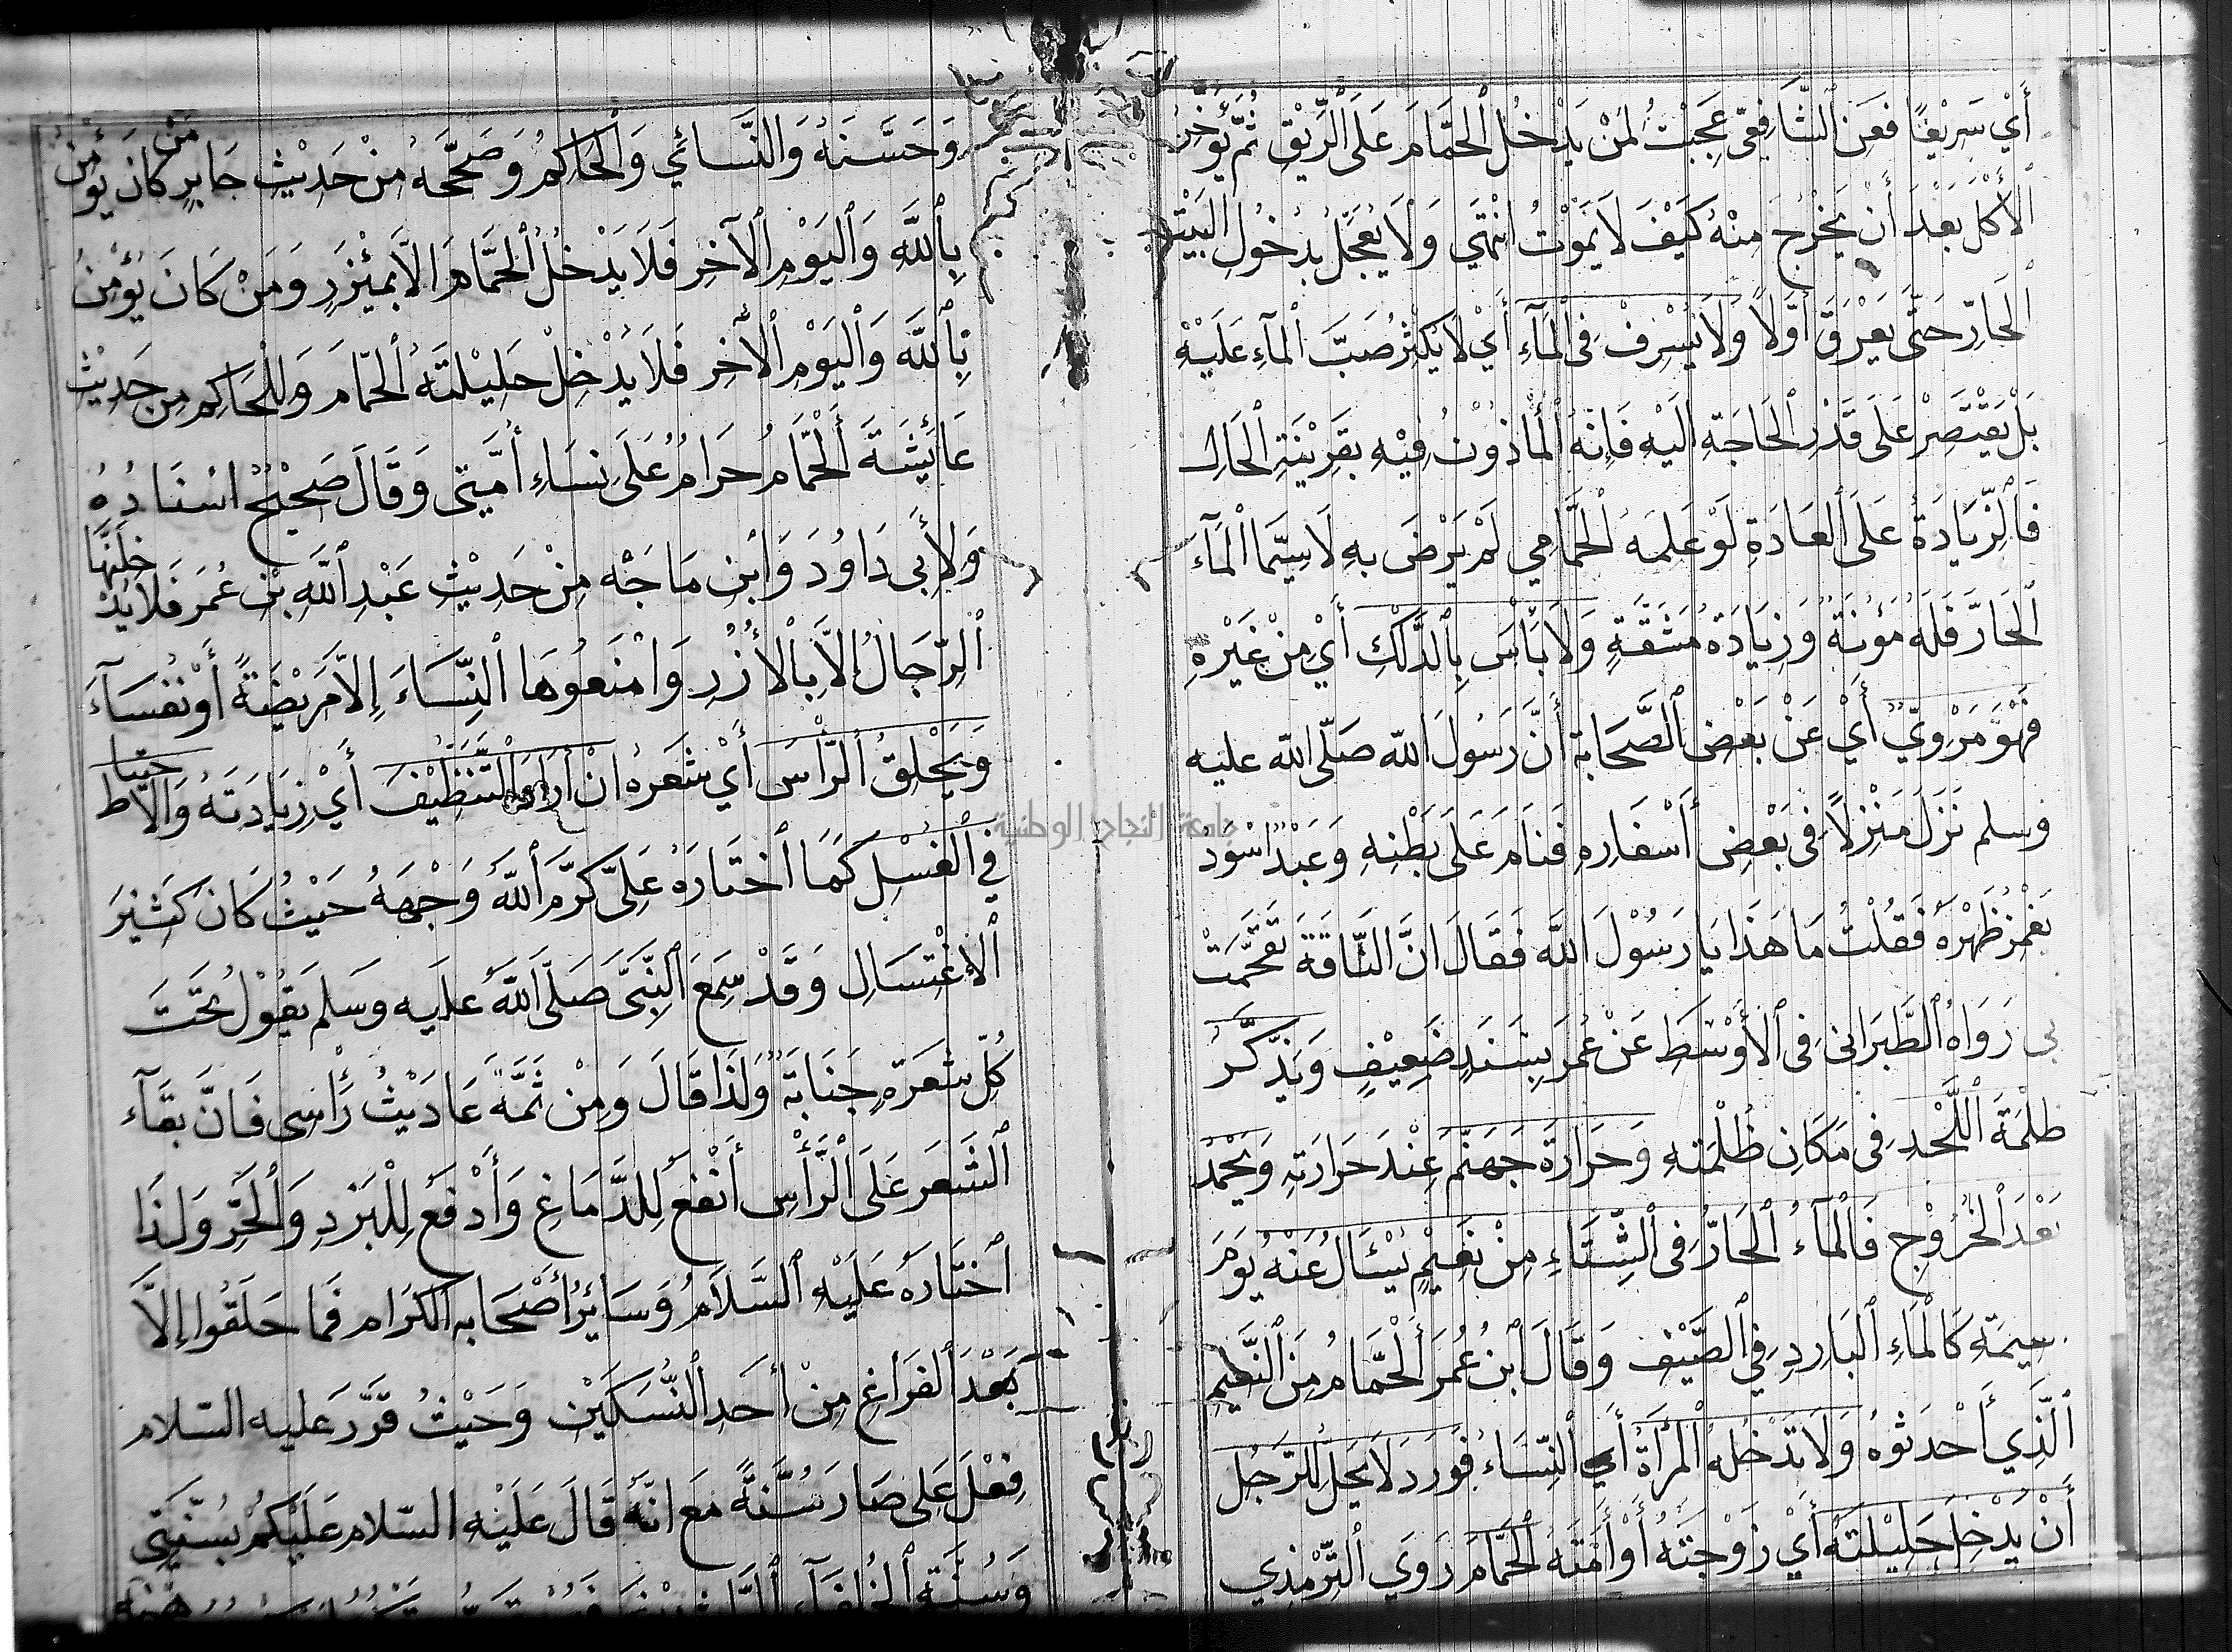 أَيْ سَرِيْعًا فَعَنِ ٱلشَّافِعِيّ عَجِبْتُ لِمَنْ يَدْخُلُ ٱلْحَمَّامَ عَلَى ٱلرِّيْقِ ثُمَّ يُؤَخِّرُ
ٱلْأَكْلَ بَعْدَ أَنْ يَخْرُجَ مِنْهُ كَيْفَ لَا يَمُوْتُ انْتَهَي وَلَا يُعَجِّلُ بِدُخُولِ الْبَيْتِ
ٱلْحَارِّ حَتَّى يَعْرَقَ أَوَّلًا وَلَا يُسْرِفْ فِى ٱلْمَآءِ أَيْ لَا يُكْثِرُ صَبَّ ٱلْمآءِ عَلَيْهِ
بَلْ يَقْتَصِرْ عَلَى قَدْرِ ٱلْحَاجَةِ الَيْهِ فَإِنَّهُ ٱلْمَأْذُوْنُ فِيْهِ بِقَرِيْنَةِ ٱلْحَالِ
فَالزِّيَادَةُ عَلَى ٱلْعَادَةِ لَوْ عَلِمَهُ ٱلْحَمَّامِي لَمْ يَرْضَ بِهِ لَا سِيَّمَا الْمَآءَ
ٱلْحَارَّ فَلَهُ مَؤُنَةٌ وَزِيَادَةُ مَشَقَّةٍ وَلَا بَأْسَ بِٱلدَّلْكِ أَيْ مِنْ غَيْرِهِ
فَهُوَ مَرْوِيٌّ أَيْ عَنْ بَعْضِ ٱلصَّحَابَةِ أَنَّ رَسُولَ الله صَلّى الله عليه
وسلم نَزَلَ مَنْزِلًا فِى بَعْضِ أَسْفَارِهِ فَنَامَ عَلَى بَطْنِهِ وَعَبْدٌ اَسْوَدُ
يَغْمِزُ ظَهْرَهُ فَقُلْتُ مَا هَذَا يَا رَسُوْلَ اللَّه فَقَالَ انَّ النَّاقَةَ تَقَحَّمَتْ
بى رَوَاهُ ٱلطَّبَرَانى فِى ٱلْأَوْسَطِ عَنْ عُمَرَ بِسَنَدٍ ضَعِيْفٍ وَيَذَّكَّرُ
ظُلْمَةَ ٱللَّحْدِ فِى مَكَانِ ظُلْمَتِهِ وَحَرَارَةَ جَهَنَّمَ عِنْدَ حَرَارَتِهِ وَيَحْمَدُ
بَعْدَ ٱلْخُرُوْجِ فَالْمَآءُ ٱلْحَارُّ فِى ٱلشِّتَاءِ مِنْ نَعِيْمٍ يُسْئَالُ عَنْهُ يَوْمَ
كَالْمَاءِ ٱلْبَارِدِ فِي ٱلصَّيْفِ وَقَالَ ابْنُ عُمَرَ أَلْحَمَّامُ مِنَ النَّعِيْمِ
ٱلَّذِي أَحْدَثوُهُ وَلَا تَدْخُلُهُ ٱلْمَرْأَةُ أَيِ ٱلنِّسَاءُ فَوَرَدَ لَا يَحِلُّ لِلرَّجُلِ
أَنْ يُدْخِلَ حَلِيْلَتَهُ أَيْ زَوْجَتَهُ أَوْ أَمَتَهُ ٱلْحَمَّامَ رَوَي ٱلتِّرْمِذِي
وَحَسَّنَهُ وَالنَّسَائِي وَٱلْحَاكِمُ وَصَحَّحَهُ مِنْ حَدِيْثِ جَابِرٍ مَنْ كَانَ يُؤْمِنُ
بِٱللَّهِ وَٱلْيَوْمِ ٱلْآخِرِ فَلَا يَدْخُلُ ٱلْحَمَّامَ الَّا بِمِئْزَرٍ وَمَنْ كَانَ يُؤْمِنُ
بِٱللَّهِ وَٱلْيَوْمِ ٱلْآخِرِ فَلَا يُدْخِلْ حَلِيْلَتَهُ ٱلْحَمَّامَ وَلِلْحَاكِمِ مِن حَدِيْثِ
عَائِشَةَ أَلْحَمَّامُ حَرَامٌ عَلَى نِسَاءِ أُمَّتِى وَقَالَ صَحِيْحٌ اسْنَادُهُ
وَلِأَبِى دَاوُدَ وَٱبْنِ مَاجَهْ مِنْ حَدِيْثِ عَبْدِ ٱللَّهِ بْنِ عُمَرَ فَلَا يَدْخُلَنَّهَا
ٱلرِّجَالُ إِلَّا بِٱلْأُزُرِ وَامْنَعُوهَا ٱلنِّسَاءَ إِلَّا مَرِيْضَةً أَوْ نُفَسَآءَ
وَيَحْلِقُ ٱلرَّأْسَ أَيْ شَعَرَهُ انْ أَرَادَ ٱلتَّنْظِيْفَ أَيْ زِيَادَتَهُ وَالْاحْتِيَاطَ
فِي ٱلْغُسْلِ كَمَا ٱخْتَارَهُ عَلِىّ كَرَّمَ ٱللَّهُ وَجْهَهُ حَيْثُ كَانَ كَثِيْرَ
ٱلْإِغْتِسَالِ وَقَدْ سَمِعَ ٱلنَّبِىَّ صَلَّى اللَّهُ عليه وَسَلم يَقُوْلُ تَحْتَ
كُلِّ شَعَرَةٍ جَنَابَةٌ وَلِذَا قَالَ وَمِنْ ثَمَّهْ عَادَيْتُ رَأْسِى فَانَّ بَقَآءَ
ٱلشَّعَرِ عَلَى ٱلرَّأْسِ أَنْفَعُ لِلدَّمَاغِ وَأَدْفَعُ لِلْبَرْدِ وَٱلْحَرِّ وَلِذَا
ٱخْتَارَهُ عَلَيْهِ ٱلسَّلَامُ وَسَائِرُ أَصْحَابِهِ ٱلكِرَامِ فَمَا حَلَقُوا إِلَّا
بَعْدَ ٱلْفَرَاغِ مِنْ أَحَدِ ٱلنُّسُكَيْنِ وَحَيْثُ قَرَّرَ عليه السّلام
فِعْلَ عَلِى صَارَ سُنَّةً مَعَ انَّهُ قَالَ عَلَيْهِ السّلام عَلَيْكُمْ بِسُنَّتِى
وَسُنَّةِ ٱلْخُلَفَآءِ
جامعة النجاح الوطنية